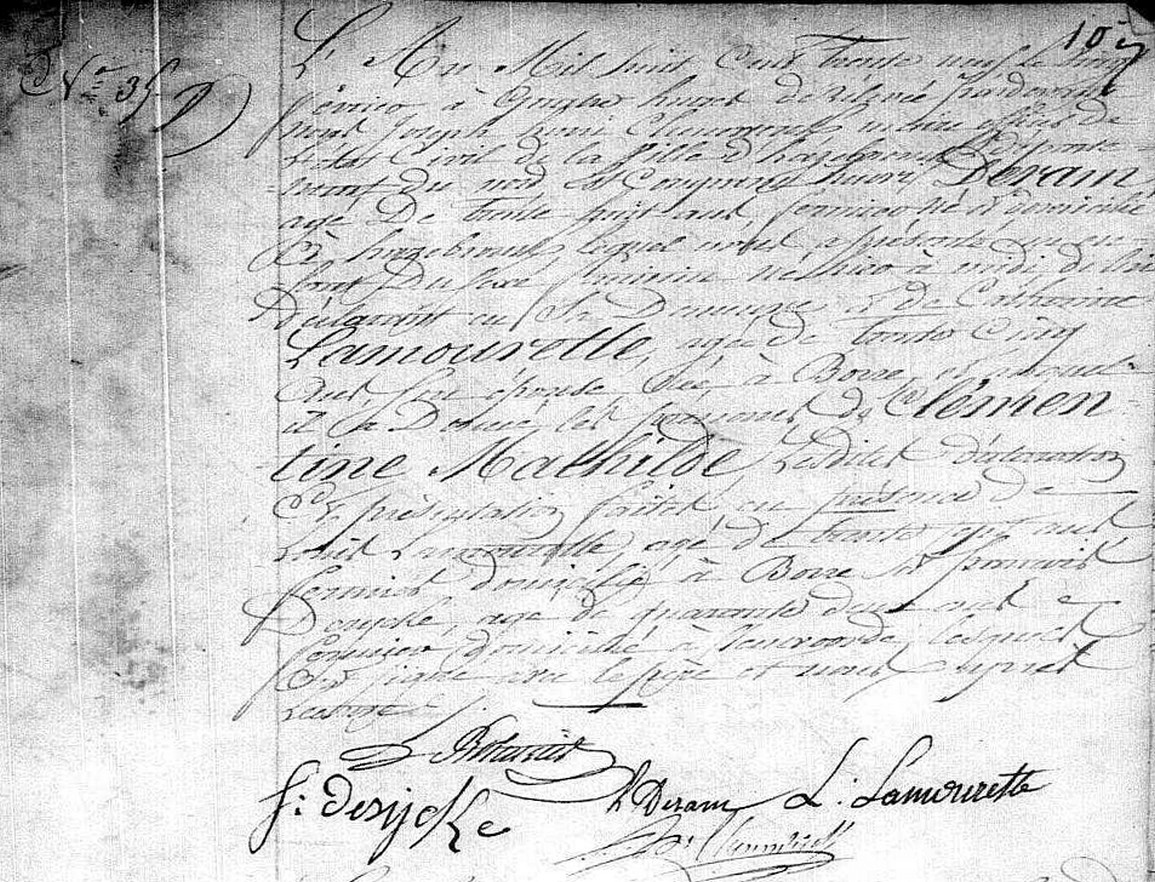 107
N° 35
L'An Mil huit Cent trente neuf le cinq
février à quatre heures de relevée pardevant
nous Joseph henri officier de
L'état Civil de la Ville d'hazebrouck Départe-
ment du nord Est Comparu henri Deram
agé De trente huit ans, fermier né et domicilié
à hazebrouck, lequel nous a présenté un en-
fant Du sexe féminin né hier à midi, de lui
Déclarant en Sa Demeure et de Catherine
Lamourette, agée de trente Cinq
ans son épouse née à Borre, et auquel
il a Donné les prénoms de Clémen-
tine Mathilde, Lesdites déclaration
Et présentation faites en présence de
Louis Lamourette, agé De trente sept ans
fermier domicilié à Borre et françois
Desycke, agé de quarante deux ans
fermier domicilié à lesquels
ont signé avec le père et nous après
Lecture
f: desycke
h Deram L. Lamourette